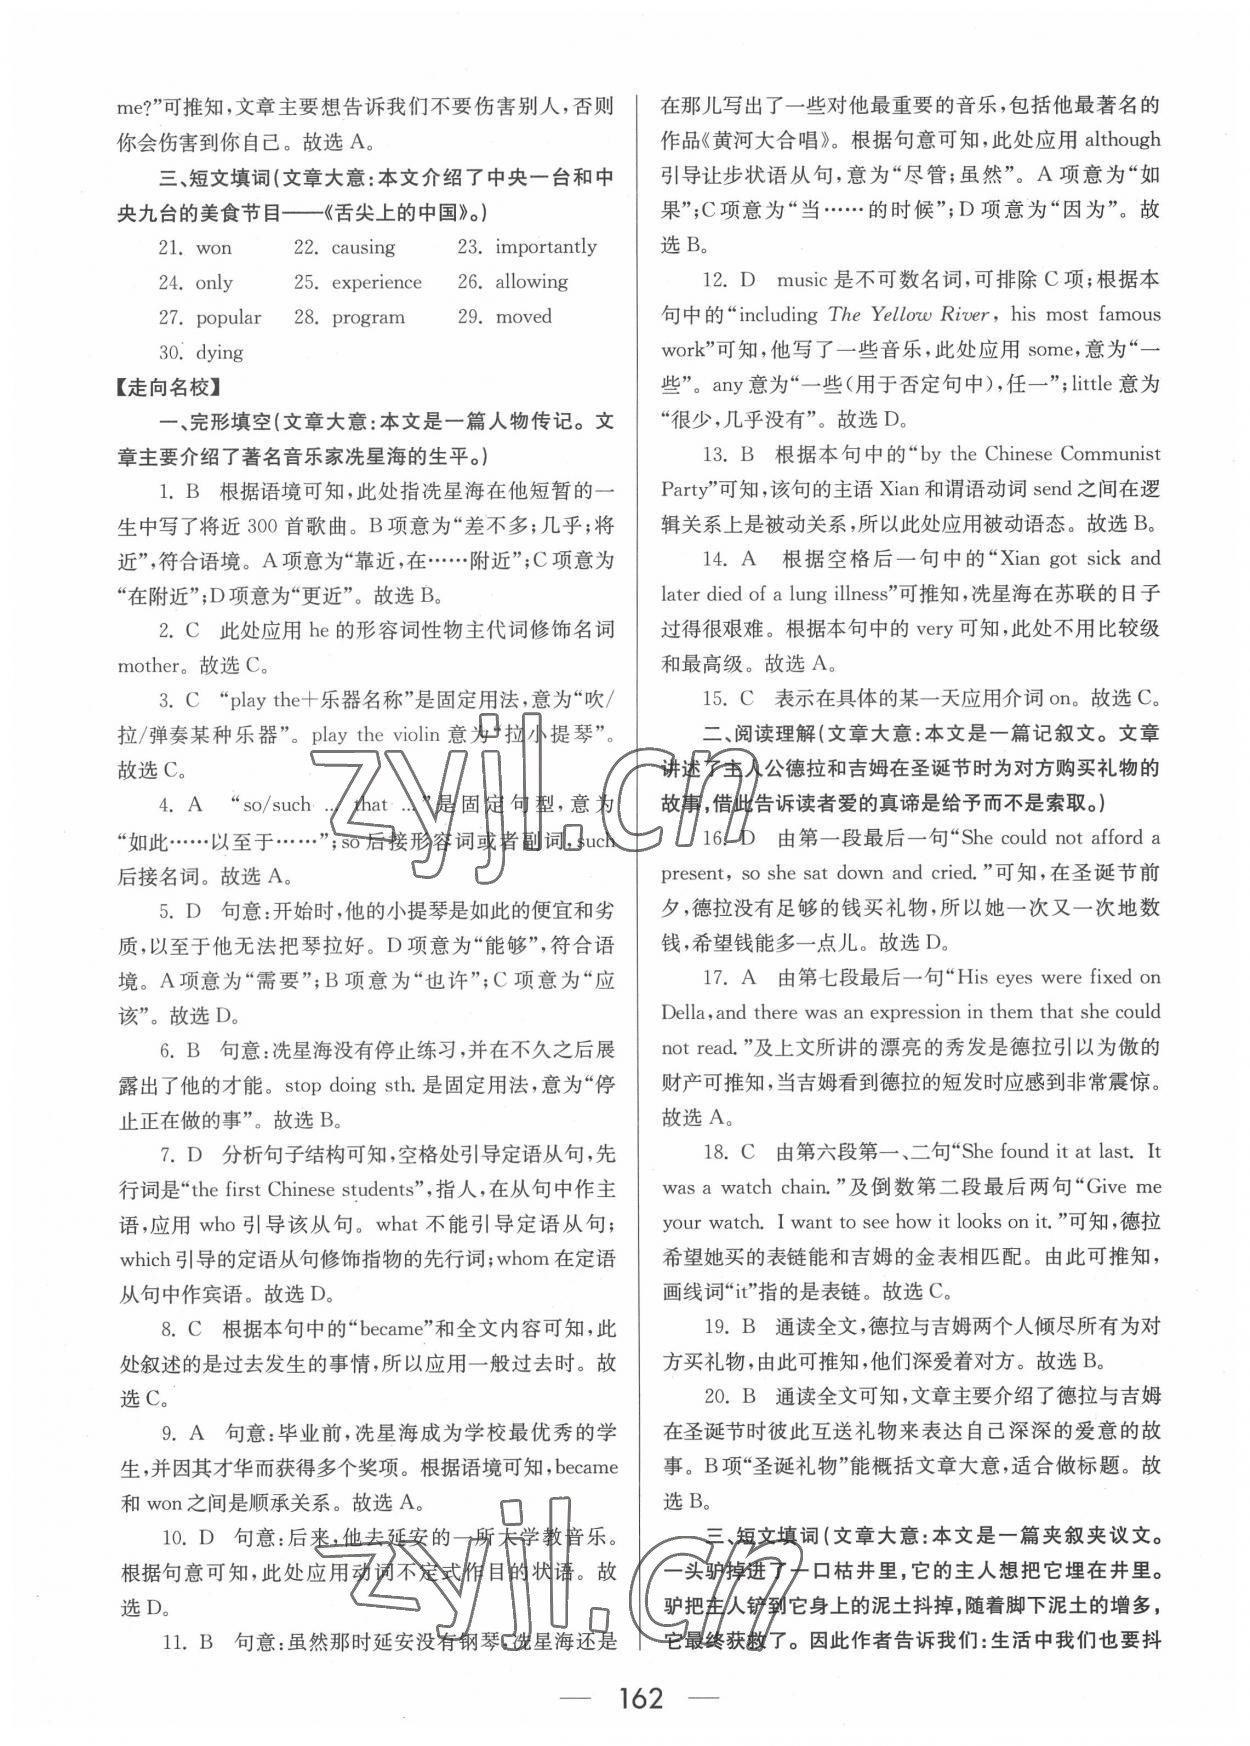 me?”可推知,文章主要想告诉我们不要伤害别人,否则
你会伤害到你自己。故选 A。
三、短文填词(文章大意:本文介绍了中央一台和中
央九台的美食节目——《舌尖上的中国》。)
21. won 22. causing 23. importantly
24. only 25. experience 26. allowing
27. popular 28. program 29. moved
30. dying
【走向名校】
一、完形填空(文章大意:本文是一篇人物传记。文
章主要介绍了著名音乐家冼星海的生平。)
1. B 根据语境可知,此处指冼星海在他短暂的一
生中写了将近 300 首歌曲。B 项意为“差不多;几乎;将
近”,符合语境。A 项意为“靠近,在……附近”;C 项意为
“在附近”;D 项意为“更近”。故选 B。
2. C 此处应用 he 的形容词性物主代词修饰名词
mother。故选 C。
3. C “play the+乐器名称”是固定用法,意为“吹/
拉/弹奏某种乐器”。play the violin 意为“拉小提琴”。
故选 C。
4. A “so/such … that …”是固定句型,意为
“如此……以至于……”;so 后接形容词或者副词,such
后接名词。故选 A。
5. D 句意:开始时,他的小提琴是如此的便宜和劣
质,以至于他无法把琴拉好。D 项意为“能够”,符合语
境。A 项意为“需要”;B 项意为“也许”;C 项意为“应
该”。故选 D。
6. B 句意:冼星海没有停止练习,并在不久之后展
露出了他的才能。stop doing sth. 是固定用法,意为“停
止正在做的事”。故选 B。
7. D 分析句子结构可知,空格处引导定语从句,先
行词是“the first Chinese students”,指人,在从句中作主
语,应用 who 引导该从句。what 不能引导定语从句;
which 引导的定语从句修饰指物的先行词;whom 在定语
从句中作宾语。故选 D。
8. C 根据本句中的“became”和全文内容可知,此
处叙述的是过去发生的事情,所以应用一般过去时。故
选 C。
9. A 句意:毕业前,冼星海成为学校最优秀的学
生,并因其才华而获得多个奖项。根据语境可知,became
和 won 之间是顺承关系。故选 A。
10. D 句意:后来,他去延安的一所大学教音乐。
根据句意可知,此处应用动词不定式作目的状语。故
选 D。
11. B 句意:虽然那时延安没有钢琴,冼星海还是
在那儿写出了一些对他最重要的音乐,包括他最著名的
作品《黄河大合唱》。根据句意可知,此处应用 although
引导让步状语从句,意为“尽管;虽然”。A 项意为“如
果”;C 项意为“当……的时候”;D 项意为“因为”。故
选 B。
12. D music 是不可数名词,可排除 C 项;根据本
句中的“including The Yellow River, his most famous
work”可知,他写了一些音乐,此处应用 some,意为“一
些”。any 意为“一些(用于否定句中),任一”;little 意为
“很少,几乎没有”。故选 D。
13. B 根据本句中的“by the Chinese Communist
Party”可知,该句的主语 Xian 和谓语动词 send 之间在逻
辑关系上是被动关系,所以此处应用被动语态。故选 B。
14. A 根据空格后一句中的“Xian got sick and
later died of a lung illness”可推知,冼星海在苏联的日子
过得很艰难。根据本句中的 very 可知,此处不用比较级
和最高级。故选 A。
15. C 表示在具体的某一天应用介词 on。故选 C。
二、阅读理解(文章大意:本文是一篇记叙文。文章
讲述了主人公德拉和吉姆在圣诞节时为对方购买礼物的
故事,借此告诉读者爱的真谛是给予而不是索取。)
16. D 由第一段最后一句“She could not afford a
present, so she sat down and cried.”可知,在圣诞节前
夕,德拉没有足够的钱买礼物,所以她一次又一次地数
钱,希望钱能多一点儿。故选 D。
17. A 由第七段最后一句“His eyes were fixed on
Della,and there was an expression in them that she could
not read.”及上文所讲的漂亮的秀发是德拉引以为傲的
财产可推知,当吉姆看到德拉的短发时应感到非常震惊。
故选 A。
18. C 由第六段第一、二句“She found it at last. It
was a watch chain.”及倒数第二段最后两句“Give me
your watch. I want to see how it looks on it.”可知,德拉
希望她买的表链能和吉姆的金表相匹配。由此可推知,
画线词“it”指的是表链。故选 C。
19. B 通读全文,德拉与吉姆两个人倾尽所有为对
方买礼物,由此可推知,他们深爱着对方。故选 B。
20. B 通读全文可知,文章主要介绍了德拉与吉姆
在圣诞节时彼此互送礼物来表达自己深深的爱意的故
事。B 项“圣诞礼物”能概括文章大意,适合做标题。故
选 B。
三、短文填词(文章大意:本文是一篇夹叙夹议文。
一头驴掉进了一口枯井里,它的主人想把它埋在井里。
驴把主人铲到它身上的泥土抖掉,随着脚下泥土的增多,
它最终获救了。因此作者告诉我们:生活中我们也要抖
— 162 —
zyjl.cn
zyjl.cn